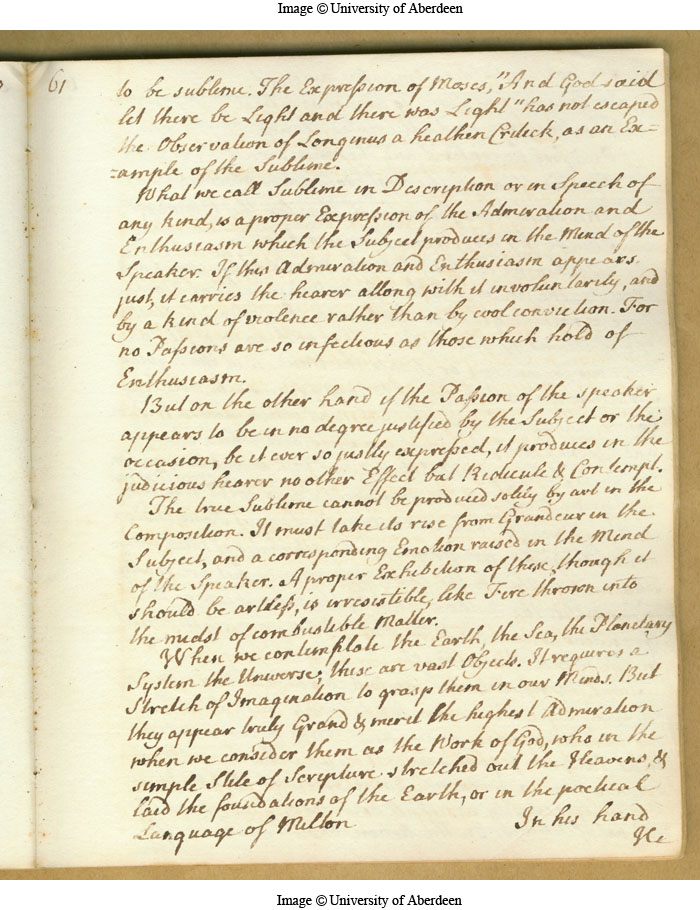 Image © University of Aberdeen
61
to be sublime. The Expression of Moses, "And God said
let there be Light and there was Light" has not escaped
the Observation of Longinus a heathen Critick, as an Ex=
=ample of the Sublime.
What we call Sublime in Description or in Speech of
any kind, is a proper Expression of the Admiration and
Enthusiasm which the Subject produces in the Mind of the
Speaker. If this Admiration and Enthusiasm appears
just, it carries the hearer allong with it involuntarily, and
by a kind of violence rather than by cool conviction. For
no Passions are so infectious as those which hold of
Enthusiasm.
But on the other hand if the Passion of the speaker
appears to be in no degree justified by the Subject or the
occasion, be it ever so justly expressed, it produces in the
judicious hearer no other Effect but Ridicule & Contempt.
The true Sublime cannot be produced solely by art in the
Composition. It must take its rise from Grandeur in the
Subject, and a corresponding Emotion raised in the Mind
of the Speaker. A proper Exhibition of these, though it
should be artless, is irresistible, like Fire thrown into
the midst of combustible Matter.
When we contemplate the Earth, the Sea, the Planetary
System the Universe; these are vast Objects. It requires a
Stretch of Imagination to grasp them in our Minds. But
they appear truly Grand & merit the highest Admiration
when we consider them as the Work of God, who in the
simple Stile of Scripture stretched out the Heavens, &
laid the foundations of the Earth, or in the poetical
Language of Milton In his hand
He
Image © University of Aberdeen